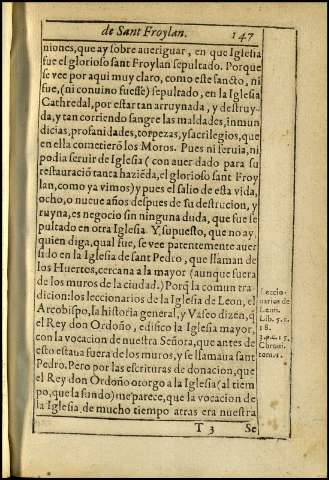 de Sant Froylan. 147
niones, que ay sobre aueriguar, en que Iglesia
fue el glorioso sant Froylan sepultado. Porque
se vee por aqui muy claro, como este sancto, ni
fue, (ni conuino fuesse) sepultado, en la Iglesia
Cathredal, por estar tan arruynada, y destruy-
da, y tan corriendo sangre las maldades, inmun
dicias, profanidades, torpezas, y sacrilegios, que
en ella cometierõ los Moros. Pues ni seruia, ni
podia seruir de Iglesia (con auer dado para su
restauraciõ tanta haziẽda, el glorioso sant Froy
lan, como ya vimos) y pues el salio de esta vida,
ocho, o nueue años despues de su destrucion, y
ruyna, es negocio sin ninguna duda, que fue se
pulcado en otra Iglesia. Y, supuesto, que no ay,
quien diga, qual fue, se vee patentemente auer
sido en la Iglesia de sant Pedro, que llaman de
los Huertos, cercana a la mayor (aunque fuera
de los muros de la ciudad.) Porq̃ la comun tra
dicion: los leccionarios de la Iglesia de Leon, el
Arcobispo, la historia general, y Vaseo dizen, q̃
el Rey don Ordoño, edifico la Iglesia mayor,
con la vocacion de nuestra Señora, que antes de
esto estaua fuera de los muros, y se llamaua sant
Pedro. Pero por las escrituras de donacion, que
el Rey don Ordoño otorgo a la Iglesia (al tiem
po, que la fundo) me parece, que la vocacion de
la Iglesia, de mucho tiempo atras era nuestra
T 3 Se
Leccio-
narios de
Leon.
Lib. 5. c.
18.
3. p. c. 15.
Chroni.
tom. 1.